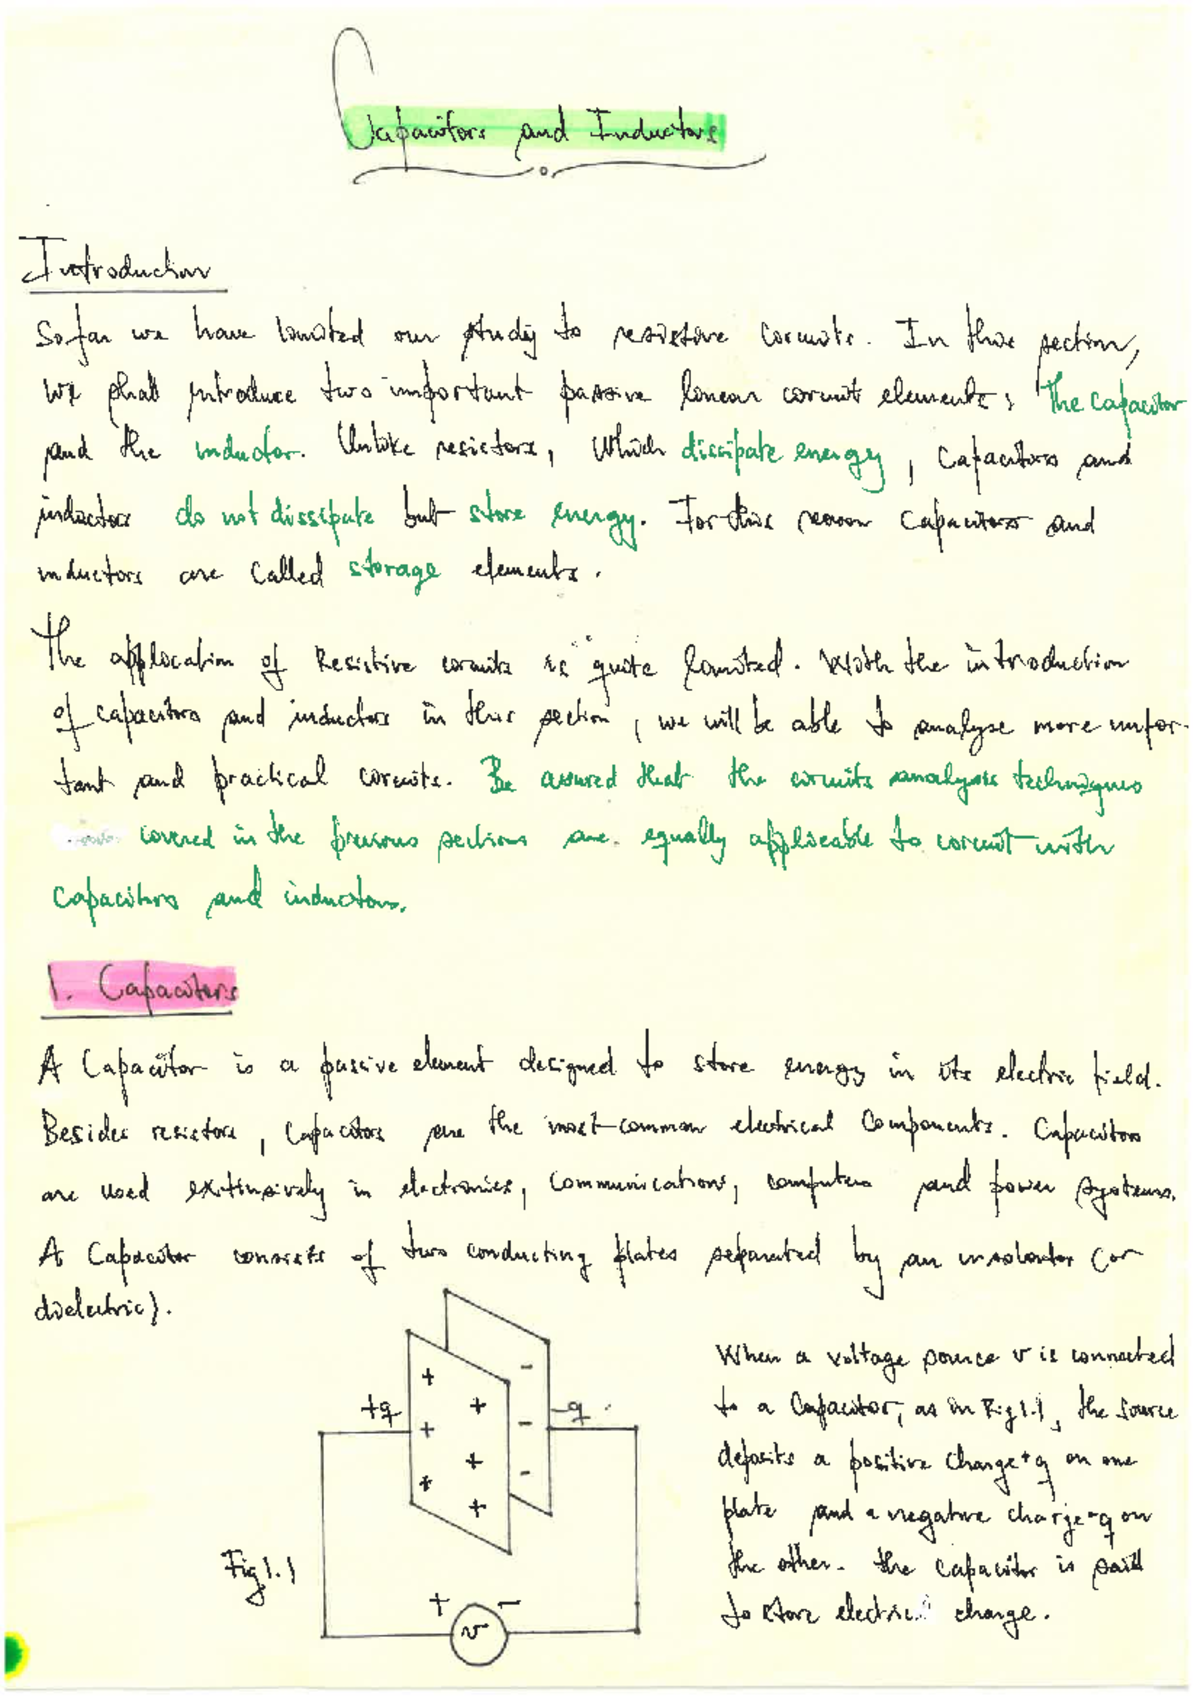 Capacitors and Inductors
Introduction
So far we have limited our study to resistive circuits. In this section,
we shall introduce two important passive linear circuit elements; The capacitor
and the inductor. Unlike resistors, which dissipate energy, capacitors and
inductors do not dissipate but store energy. For this reason capacitors and
inductors are called storage elements.
The application of Resistive circuits is quite limited. With the introduction
of capacitors and inductors in this section, we will be able to analyse more impor-
tant and practical circuits. Be assured that the circuits analysis techniques
covered in the previous sections are equally applicable to circuit with
capacitors and inductors.
1. Capacitors
A Capacitor is a passive element designed to store energy in its electric field.
Besides resistors, Capacitors are the most common electrical Components. Capacitors
are used extensively in electronics, communications, computers and power systems.
A Capacitor consists of two conducting plates separated by an insolator (or
dielectric).
When a voltage source v is connected
to a Capacitor, as in Fig 1.1, the source
deposits a positive charge +q on one
plate and a negative charge -q on
the other. The capacitor is said
to store electric charge.
+q
-q
+ + + + + +
- - -
Fig 1.1
+ -
v